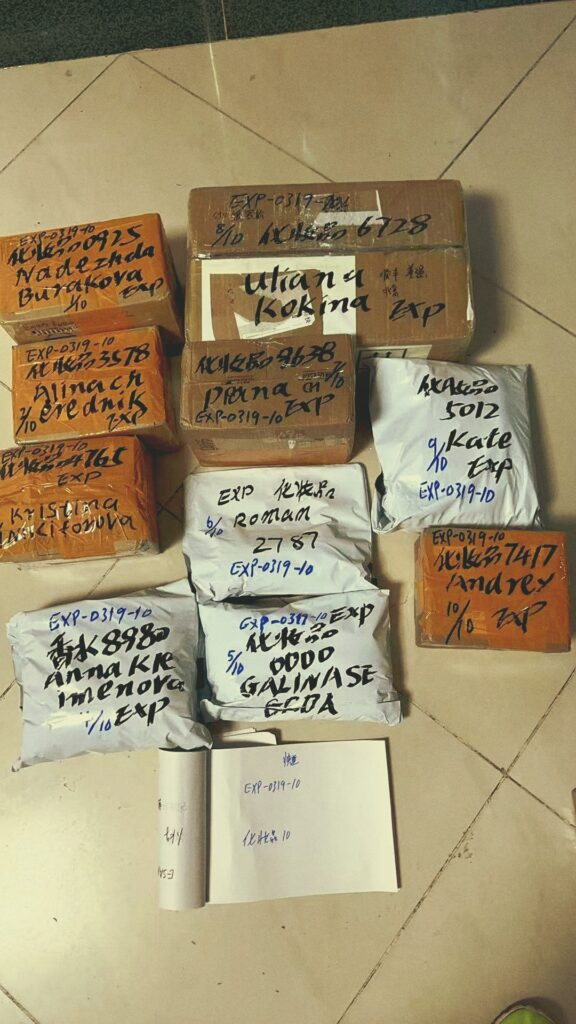 EXP-0319-10
化妆品0925
Nadezhda
Burakova
1/10 EXP
EXP-0319-
8/10 化妆品 6728
Uliana
Kokina
EXP
EXP-0319-10
化妆品3578
Alinach
erednik
2/10 EXP
化妆品9638
7/10
EXP-0319-10 EXP
化妆品
5012
9/10 Kate
EXP
EXP-0319-10
EXP-0319-10
化妆品4765
EXP
Kristina
EXP 化妆品
6/10 Roman
2787
EXP-0319-10
EXP-0319-10
化妆品7417
Andrey
10/10 EXP
EXP-0319-10
香水8980
Anna Kle
imenova
/10 EXP
EXP-0319-10 EXP
化妆品
5/10 0000
GALINASE
快递
EXP-0319-10
化妆品 10